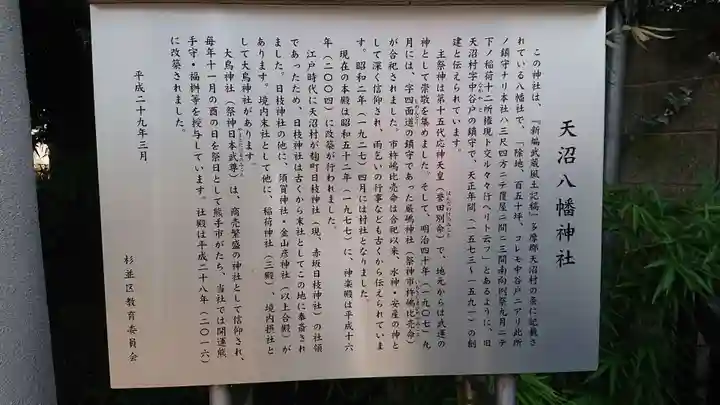 天沼八幡神社
この神社は、『新編武蔵風土記稿』多摩郡天沼村の条に記載さ
れている八幡社で、「除地、百五十坪、コレモ中谷戸ニアリ此所
ノ鎮守ナリ本社ハ三尺四方ニテ覆屋二間ニ三間南向例祭九月二テ
下ノ稲荷十二所権現ト交ル々々行ヘリト云フ」とあるように、旧
天沼村字中谷戸の鎮守で、天正年間(一五七三〜一五九一)の創
建と伝えられています。
主祭神は第十五代応神天皇(誉田別命)で、地元からは武運の
神として崇敬を集めました。そして、明治四十年(一九〇七)九
月には、字四面道の鎮守であった厳嶋神社(祭神市杵嶋比売命)
が合祀されました。市杵嶋比売命は合祀以来、水神・安産の神と
して深く信仰され、雨乞いの行事なども古くから伝えられていま
す。昭和二年(一九二七)四月には村社となりました。
現在の本殿は昭和五十二年(一九七七)に、神楽殿は平成十六
年(二〇〇四)に改築が行われました。
江戸時代に天沼村が麹町日枝神社(現、赤坂日枝神社)の社領
であったため、日枝神社は古くから末社としてこの地に奉斎され
ました。日枝神社の他に、須賀神社・金山彦神社(以上合殿)が
あります。境内末社として他に、稲荷神社(三殿)、境内摂社と
して大鳥神社があります。
大鳥神社(祭神日本武尊)は、商売繁盛の神社として信仰され、
毎年十一月の酉の日を祭日として熊手市がたち、当社では開運熊
手守・福桝等を授与しています。社殿は平成二十八年(二〇一六)
に改築されました。
平成二十九年三月
杉並区教育委員会